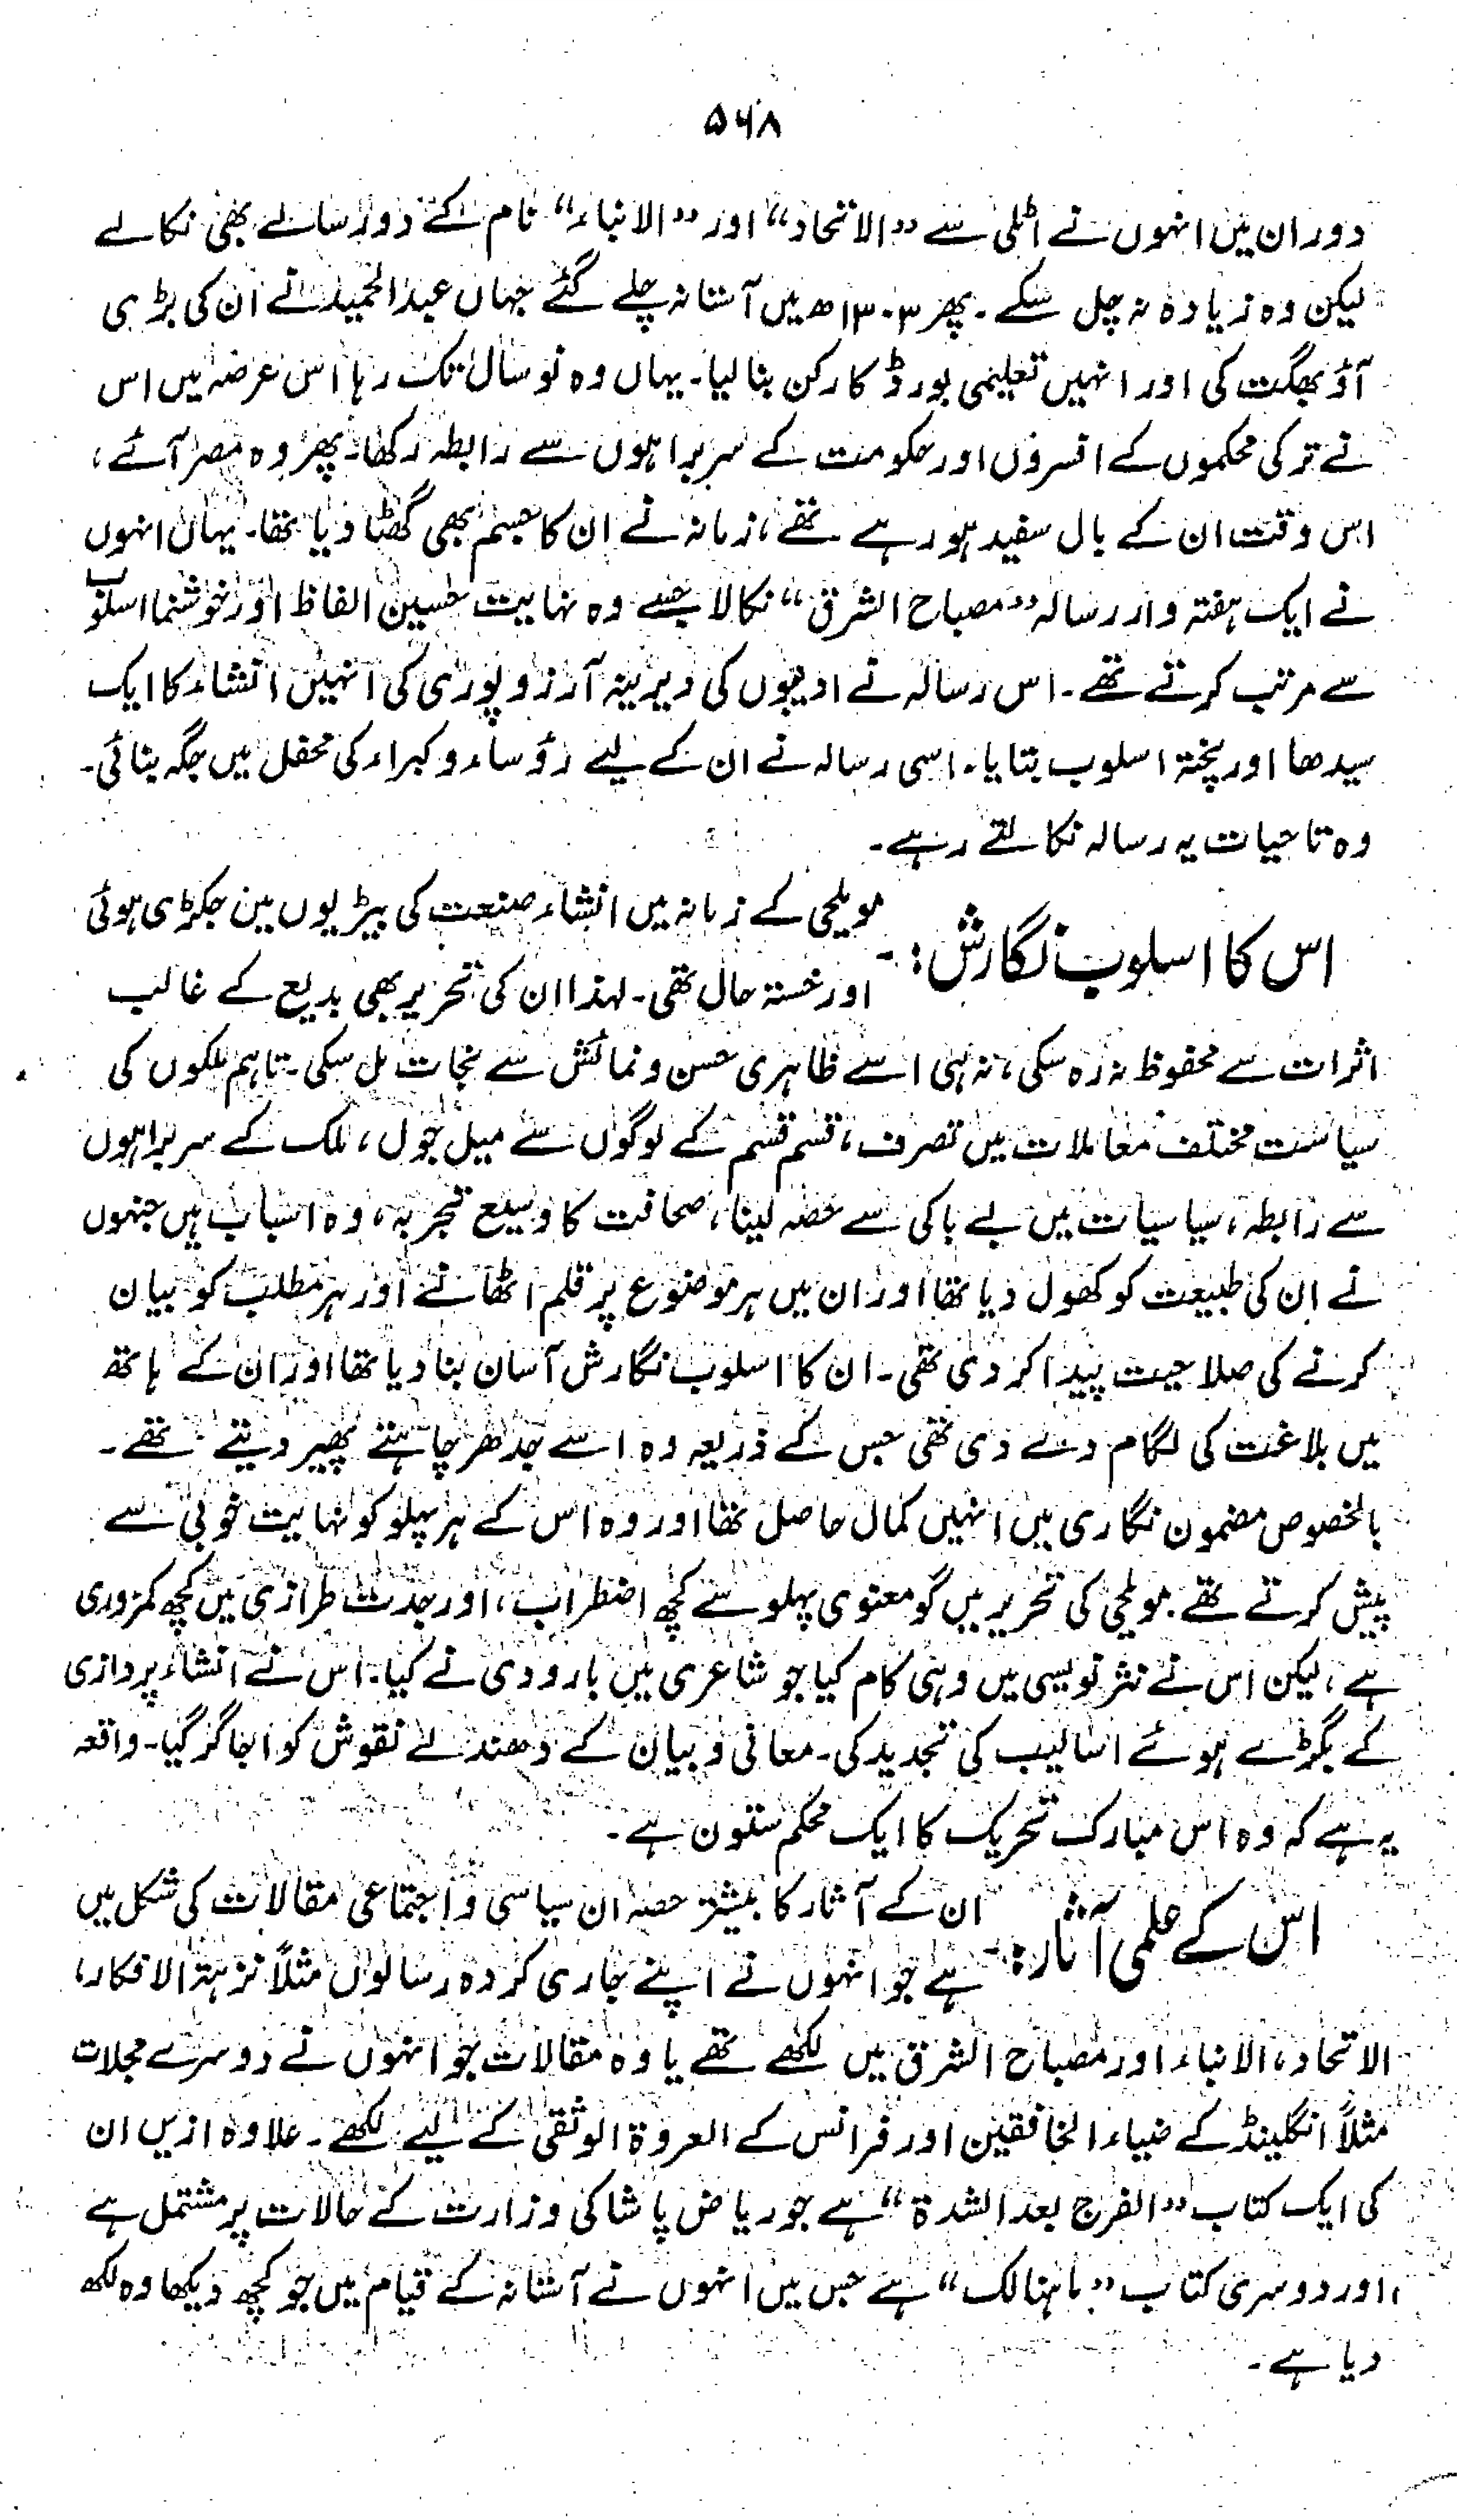 ۵۶۸
دوران میں انہوں نے اٹلی سے ”الاتحاد“ اور ”الانباء“ نام کے دو رسالے بھی نکالے
لیکن وہ زیادہ نہ چل سکے۔ پھر ۱۳۰۳ھ میں آستانہ چلے گئے جہاں عبدالحمید نے ان کی بڑی
آؤ بھگت کی اور انہیں تعلیمی بورڈ کا رکن بنا لیا۔ یہاں وہ نو سال تک رہا اس عرصہ میں اس
نے ترکی محکموں کے افسروں اور حکومت کے سربراہوں سے رابطہ رکھا۔ پھر وہ مصر آئے،
اس وقت ان کے بال سفید ہو رہے تھے، زمانہ نے ان کا جسم بھی گھٹا دیا تھا۔ یہاں انہوں
نے ایک ہفتہ وار رسالہ ”مصباح الشرق“ نکالا جسے وہ نہایت حسین الفاظ اور خوشنما اسلوب
سے مرتب کرتے تھے۔ اس رسالہ نے ادیبوں کی دیرینہ آرزو پوری کی انہیں انشاء کا ایک
سیدھا اور پختہ اسلوب بتایا۔ اسی رسالہ نے ان کے لیے رؤساء و کبراء کی محفل میں جگہ بنائی۔
وہ تاحیات یہ رسالہ نکالتے رہے۔
اس کا اسلوب نگارش:۔ مویلحی کے زمانہ میں انشاء صنعت کی بیڑیوں میں جکڑی ہوئی
اور خستہ حال تھی۔ لہذا ان کی تحریر بھی بدیع کے غالب
اثرات سے محفوظ نہ رہ سکی، نہ ہی اسے ظاہری حسن و نمائش سے نجات مل سکی۔ تاہم ملکوں کی
سیاست مختلف معاملات میں تصرف، قسم قسم کے لوگوں سے میل جول، ملک کے سربراہوں
سے رابطہ، سیاسیات میں بے باکی سے حصہ لینا، صحافت کا وسیع تجربہ، وہ اسباب ہیں جنہوں
نے ان کی طبیعت کو کھول دیا تھا اور ان میں ہر موضوع پر قلم اٹھانے اور ہر مطلب کو بیان
کرنے کی صلاحیت پیدا کر دی تھی۔ ان کا اسلوب نگارش آسان بنا دیا تھا اور ان کے ہاتھ
میں بلاغت کی لگام دے دی تھی جس کے ذریعہ وہ اسے جدھر چاہتے پھیر دیتے تھے۔
بالخصوص مضمون نگاری میں انہیں کمال حاصل تھا اور وہ اس کے ہر پہلو کو نہایت خوبی سے
پیش کرتے تھے۔ مویلحی کی تحریر میں گو معنوی پہلو سے کچھ اضطراب، اور جدت طرازی میں کچھ کمزوری
ہے، لیکن اس نے نثر نویسی میں وہی کام کیا جو شاعری میں بارودی نے کیا۔ اس نے انشاء پردازی
کے بگڑے ہوئے اسالیب کی تجدید کی۔ معانی و بیان کے دھندلے نقوش کو اجاگر کیا۔ واقعہ
یہ ہے کہ وہ اس مبارک تحریک کا ایک محکم ستون ہے۔
اس کے علمی آثار:۔ ان کے آثار کا بیشتر حصہ ان سیاسی و اجتماعی مقالات کی شکل میں
ہے جو انہوں نے اپنے جاری کردہ رسالوں مثلاً نزہتہ الافکار،
الاتحاد، الانباء اور مصباح الشرق میں لکھے تھے یا وہ مقالات جو انہوں نے دوسرے مجلات
مثلاً انگلینڈ کے ضیاء الخافقین اور فرانس کے العروۃ الوثقی کے لیے لکھے۔ علاوہ ازیں ان
کی ایک کتاب ”الفرج بعد الشدۃ“ ہے جو ریاض پاشا کی وزارت کے حالات پر مشتمل ہے
اور دوسری کتاب ”ماہنالک“ ہے جس میں انہوں نے آستانہ کے قیام میں جو کچھ دیکھا وہ لکھ
دیا ہے۔